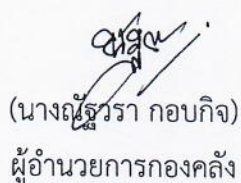 (นางณัฐวรา กอบกิจ)
ผู้อำนวยการกองคลัง